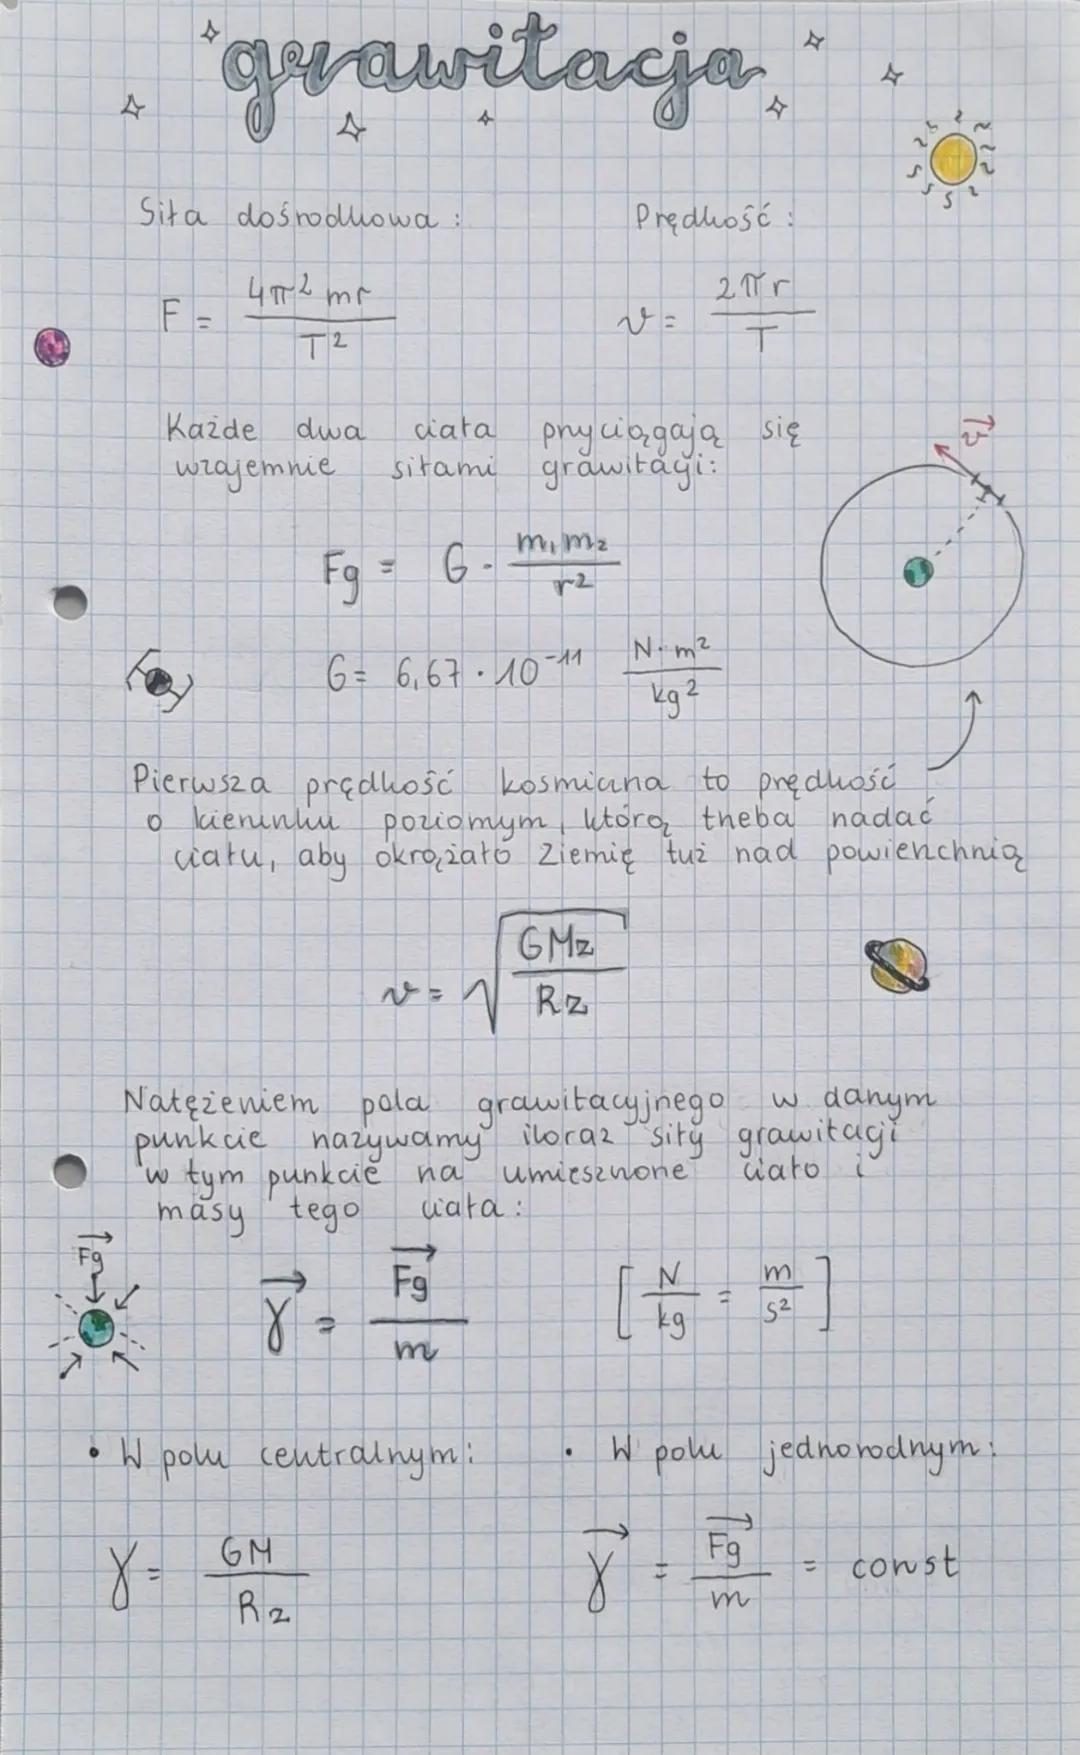 grawitacja
Siła dośrodkowa :
Prędkość :
F = 4π² mr / T²
v = 2πr / T
Każde dwa ciała przyciągają się
wzajemnie siłami grawitacji:
v⃗
Fg = G · m₁m₂ / r²
G = 6,67 · 10⁻¹¹ N·m² / kg²
Pierwsza prędkość kosmiczna to prędkość
o kierunku poziomym, którą trzeba nadać
ciału, aby okrążało Ziemię tuż nad powierzchnią
v = √(GMz / Rz)
Natężeniem pola grawitacyjnego w danym
punkcie nazywamy iloraz siły grawitacji
w tym punkcie na umieszczone ciało i
masy tego ciała :
F⃗g
γ⃗ = F⃗g / m
[N / kg = m / s²]
• W polu centralnym :
• W polu jednorodnym :
γ = GM / R2
γ⃗ = F⃗g / m = const